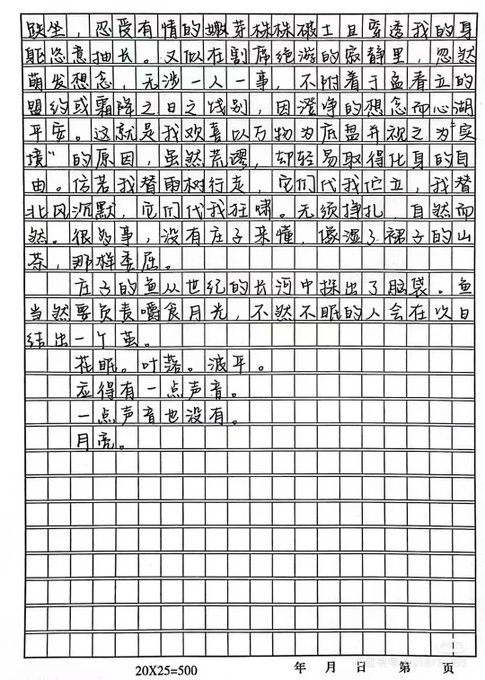 趺坐，忍受有情的嫩芽株株破土且穿透我的身
躯恣意抽长。又似在割席绝游的寂静里，忽然
萌发想念，无涉一人一事，不附着于孟春立的
盟约或霜降之日之饯别，因澄净的想念而心湖
平安。这就是我欢喜以万物为底盘并视之为“实
境”的原因，虽然荒谬，却轻易取得化身的自
由。仿若我替雨树行走，它们代我伫立，我替
北风沉默，它们代我狂啸。无须挣扎，自然而
然。很多事，没有庄子来懂，像湿了裙子的山
茶，那样委屈。
庄子的鱼从世纪的长河中探出了脑袋。鱼
当然要负责嚼食月光，不然不眠的人会在次日
结出一个茧。
花眠。叶落。波平。
应得有一点声音。
一点声音也没有。
月亮。
20X25=500 年 月 日 第 页